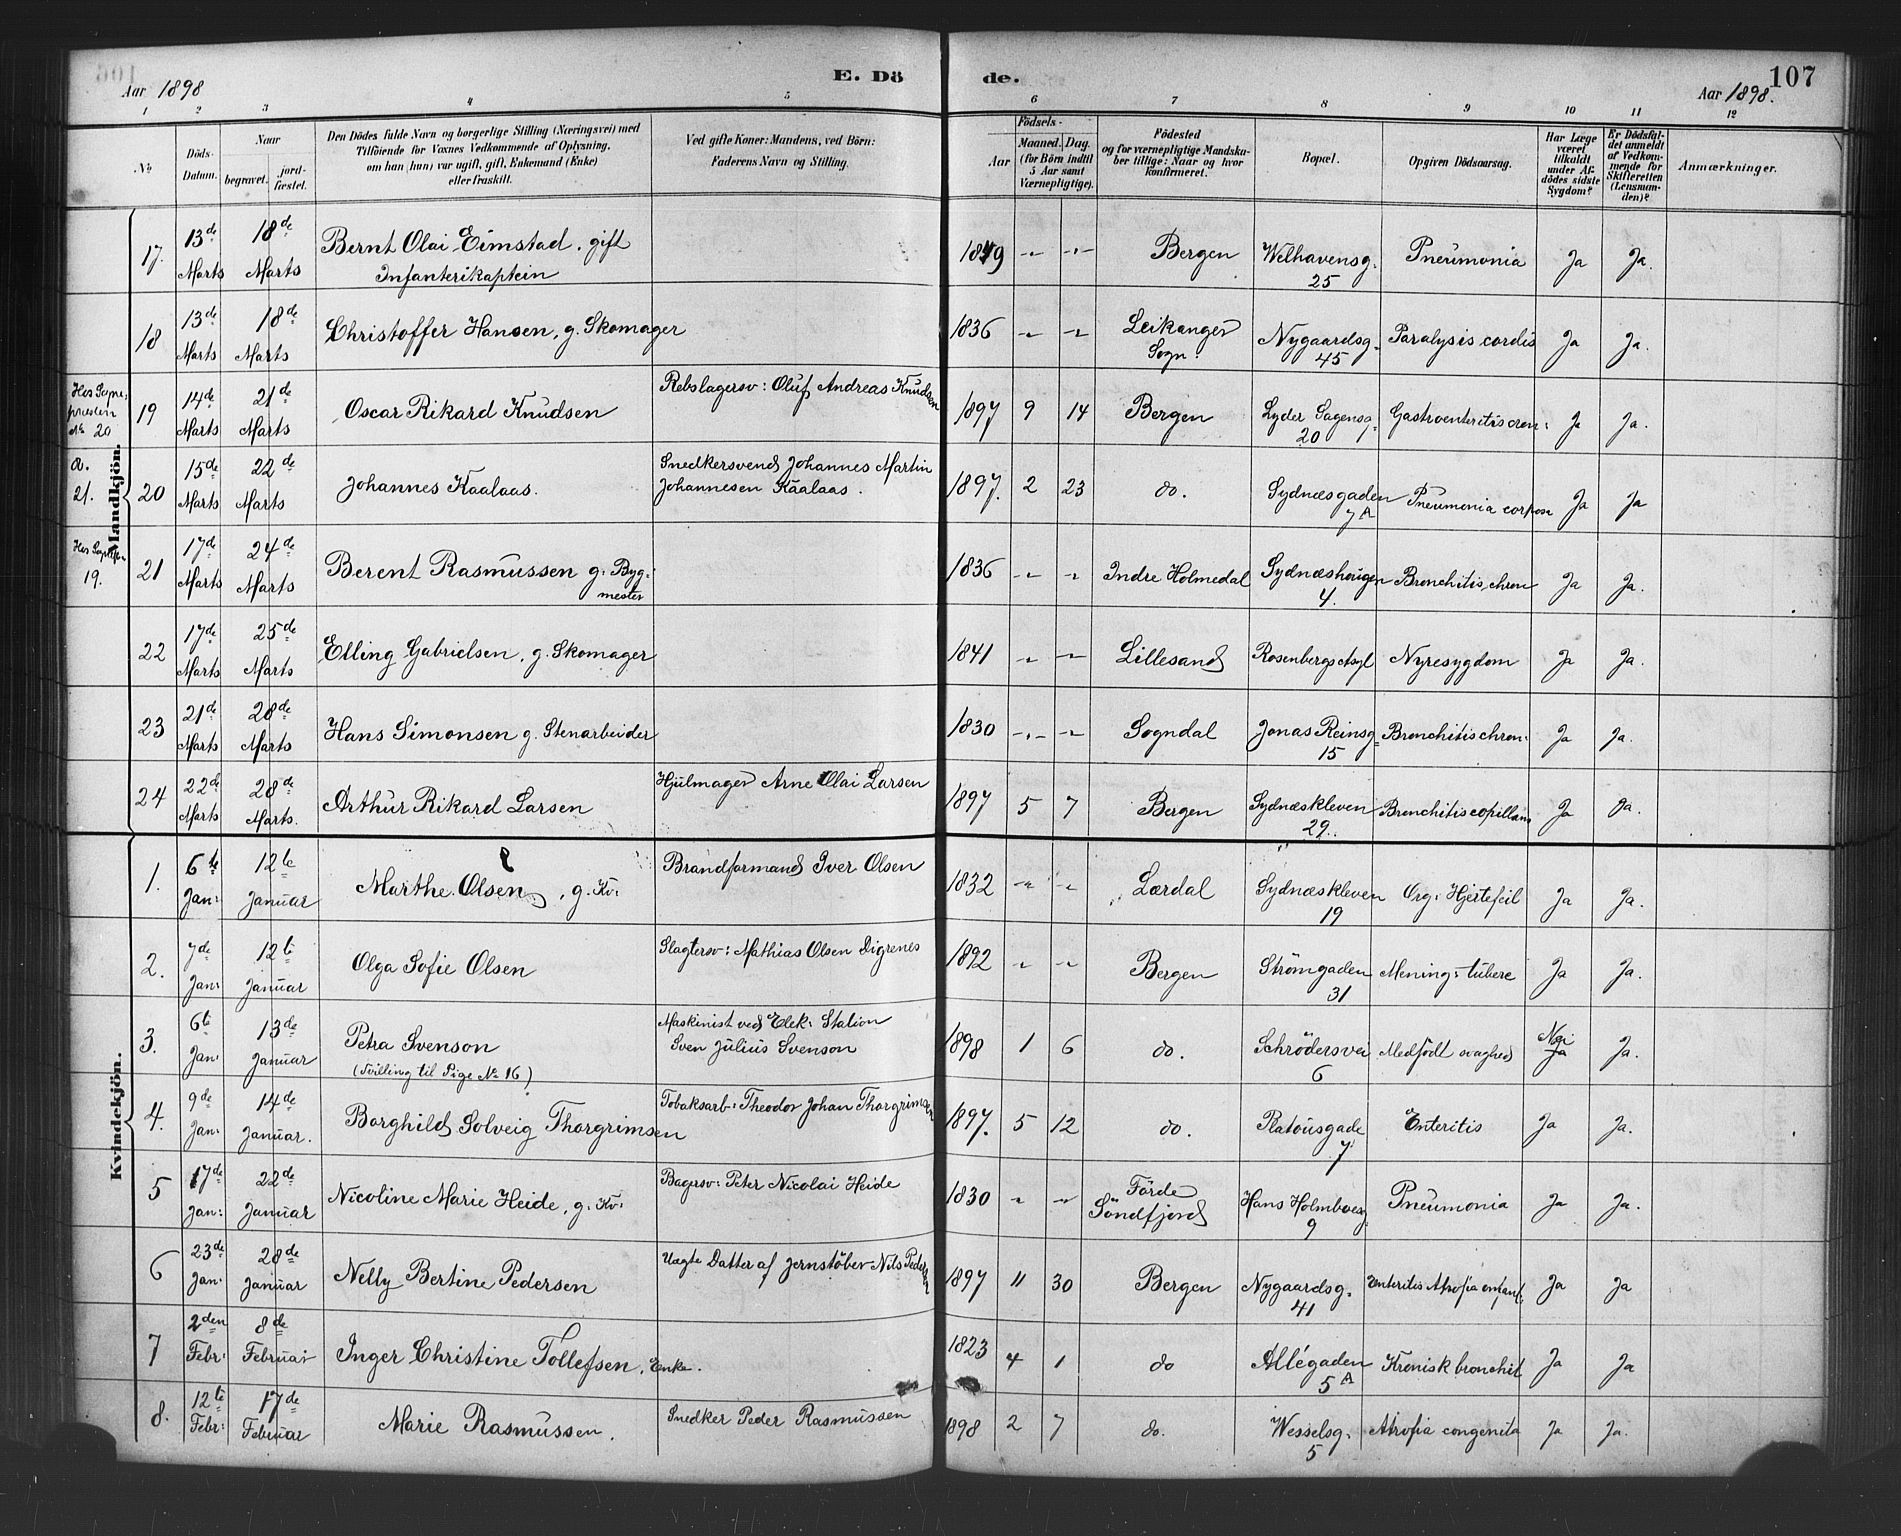 Aar 1898
E. Dö
de.
Aar 1898.
107
1 2 3 4 5 6 7 8 9 10 11 12
No
Döds-Datum.
Naar
begravet.
jord-fæstet.
Den Dödes fulde Navn og borgerlige Stilling (Næringsvei) med
Tilföiende for Voxnes Vedkommende af Oplysning,
om han (hun) var ugift, gift, Enkemand (Enke)
eller fraskilt.
Ved gifte Koner: Mandens, ved Börn:
Faderens Navn og Stilling.
Födsels-
Aar
Maaned. Dag.
(for Börn indtil
5 Aar samt
Værnepligtige).
Födested
og for værnepligtige Mandska-
ber tillige: Naar og hvor
konfirmeret.
Bopæl.
Opgiven Dödsaarsag.
Har Læge
været
tilkaldt
under Af-
dödes sidste
Sygdom?
Er Dödsfal-
det anmeldt
af Vedkom-
mende for
Skifteretten
(Lensman-
den)?
Anmærkninger.
Mandkjön.
17. 13de Marts 18de Marts Bernt Olai Eimstad. gift
Infanterikaptein
Bergen Welhavensg. 25 Pneumonia Ja Ja.
18 13de Marts 18de Marts Christoffer Hansen, g. Skomager 1836 Leikanger Sogn. Nygaardsg. 45 Paralysis cordis Ja Ja.
No 20
19 14de Marts 21de Marts Oscar Rikard Knudsen Rebslagersv: Oluf Andreas Knudsen 1897 9 14 Bergen Lyder Sagensg. 20 Gastroenteritis cron: Ja Ja.
a. 21.
20 15de Marts 22de Marts Johannes Kaalaas. Snedkersvend Johannes Martin
Johannesen Kaalaas. 1897. 2 23 do. Sydnæsgaden 7A Pneumonia Ja Ja
19.
21 17de Marts 24de Marts Berent Rasmussen g. Byg-
mester 1836 Indre Holmedal Sydnæshaugen 4. Bronchitis chron Ja Ja.
22 17de Marts 25de Marts Elling Gabrielsen, g. Skomager 1841 Lillesand Rosenbergs Asyl Nyresygdom Ja Ja.
23 21de Marts 28de Marts Hans Simonsen g. Stenarbeider 1830 Sogndal Jonas Reinsg. 15 Bronchitis chron: Ja Ja.
24 22de Marts 28de Marts. Arthur Rikard Larsen Hjulmager Arne Olai Larsen 1897 5 7 Bergen Sydnæskleven 29. Bronchitis capillaris Ja Ja.
Kvindekjön.
1. 6te Jan: 12te Januar Marthe Olsen, g. Kv: Brandformand Iver Olsen 1832 Lærdal Sydnæskleven 19 Org. Hjertefeil Ja Ja.
2. 7de Jan: 12te Januar Olga Sofie Olsen Slagtersv: Mathias Olsen Digrenes 1892 Bergen Strömgaden 31 Mening: tuberc Ja Ja.
3. 6te Jan: 13de Januar Petra Svenson
(Tvilling til Pige No 16) Maskinist ved Elek: Station
Sven Julius Svenson 1898 1 6 do. Schrödersvei 6 Medfödt svaghed Nei Ja Ja.
4. 9de Jan: 14de Januar. Borghild Solveig Thorgrimsen Tobaksarb: Theodor Johan Thorgrimsen 1897. 5 12 do. Platousgade 7 Enteritis Ja Ja.
5 17de Jan: 22de Januar Nicoline Marie Heide, g. Kv: Bagersv: Peter Nicolai Heide 1830 Förde Söndfjord Hans Holmboesg. 9 Pneumonia Ja Ja.
6 23de Jan: 28de Januar Nelly Bertine Pedersen Uægte Datter af Jernstöber Nils Pedersen 1897 11 30 Bergen Nygaardsg. 41 Enteritis Atrofia infant: Ja Ja
7 2den Febr: 8de Februar Inger Christine Tollefsen, Enke. 1823 4 1 do Allégaden 5A Kronisk bronchit Ja Ja
8. 12te Febr: 17de Februar Marie Rasmussen. Snedker Peder Rasmussen 1898 2 7 do. Wesselsg. 5 Atrofia congenita Ja Ja.